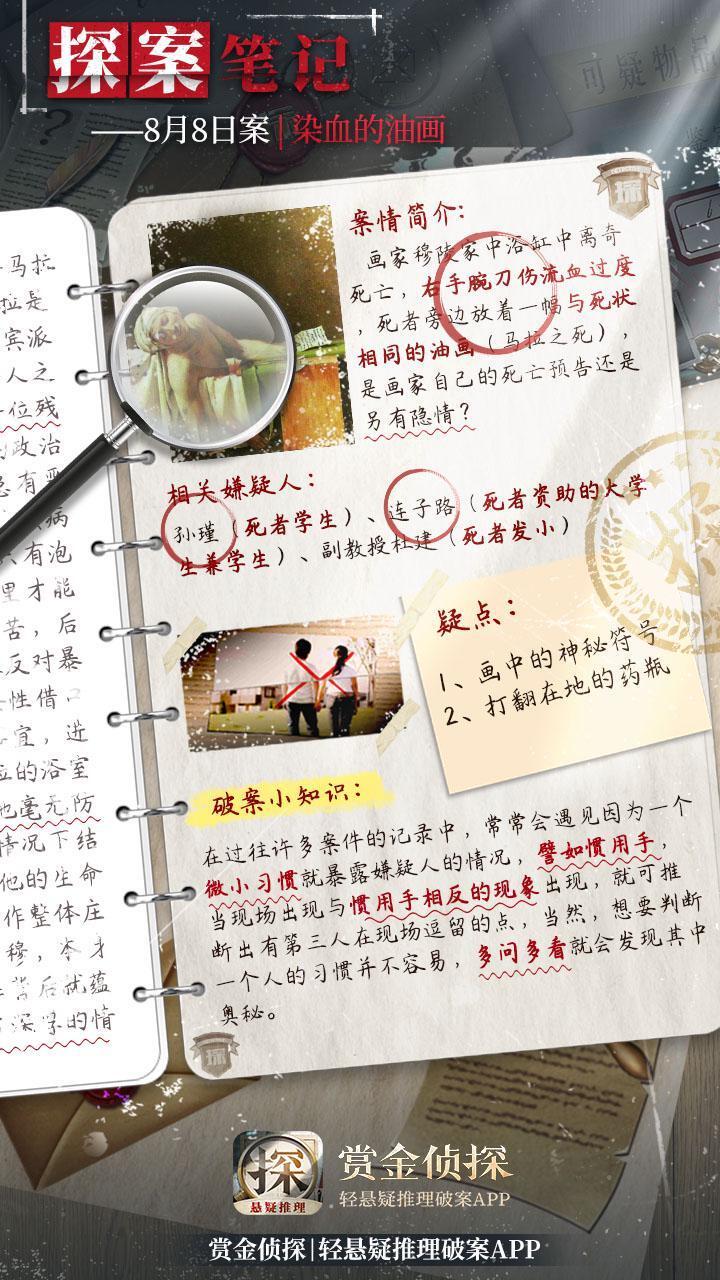 探案笔记
可疑物品
——8月8日案|染血的油画
探
案情简介：
画家穆陵家中浴缸中离奇
死亡，右手腕刀伤流血过度
，死者旁边放着一幅与死状
相同的油画（马拉之死），
是画家自己的死亡预告还是
另有隐情？
相关嫌疑人：
孙瑾（死者学生）、连子路（死者资助的大学
生兼学生）、副教授杜建（死者发小）
疑点：
1、画中的神秘符号
2、打翻在地的药瓶
破案小知识：
在过往许多案件的记录中，常常会遇见因为一个
微小习惯就暴露嫌疑人的情况，譬如惯用手，
当现场出现与惯用手相反的现象出现，就可推
断出有第三人在现场逗留的点，当然，想要判断
一个人的习惯并不容易，多问多看就会发现其中
奥秘。
马拉
拉是
宾派
人之
一位残
政治
有恶
病
只有泡
里才能
苦，后
反对暴
性借口
宜，进
的浴室
毫无防
情况下结
他的生命
作整体庄
穆，本身
背后就蕴
深厚的情
探
探
悬疑推理
赏金侦探
轻悬疑推理破案APP
赏金侦探|轻悬疑推理破案APP